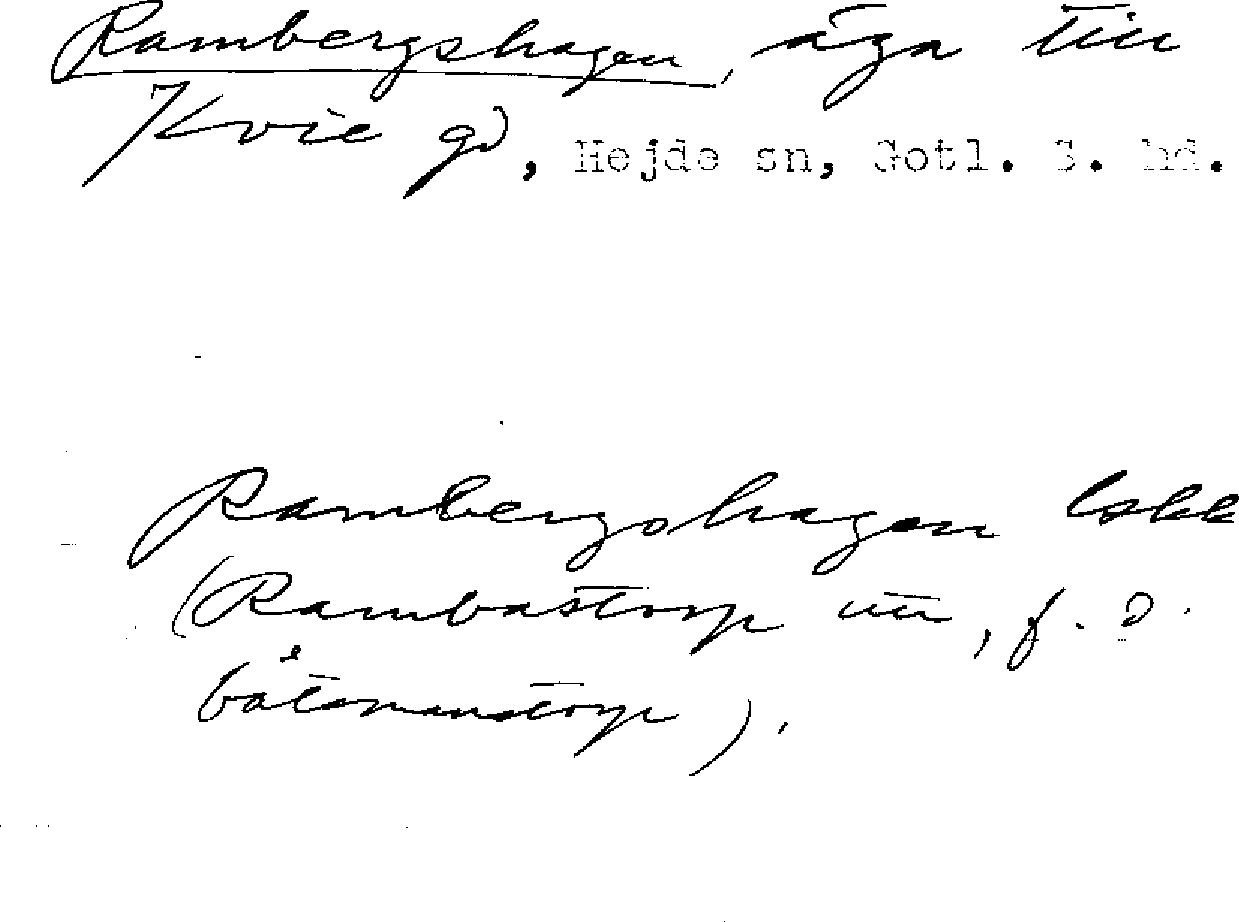 Rambergshagen, äga till
Kvie gd, Hejde sn, Gotl. S. hd.
Rambergshagen lskk
(Rambastorp utt, f. d.
båtsmanstorp).